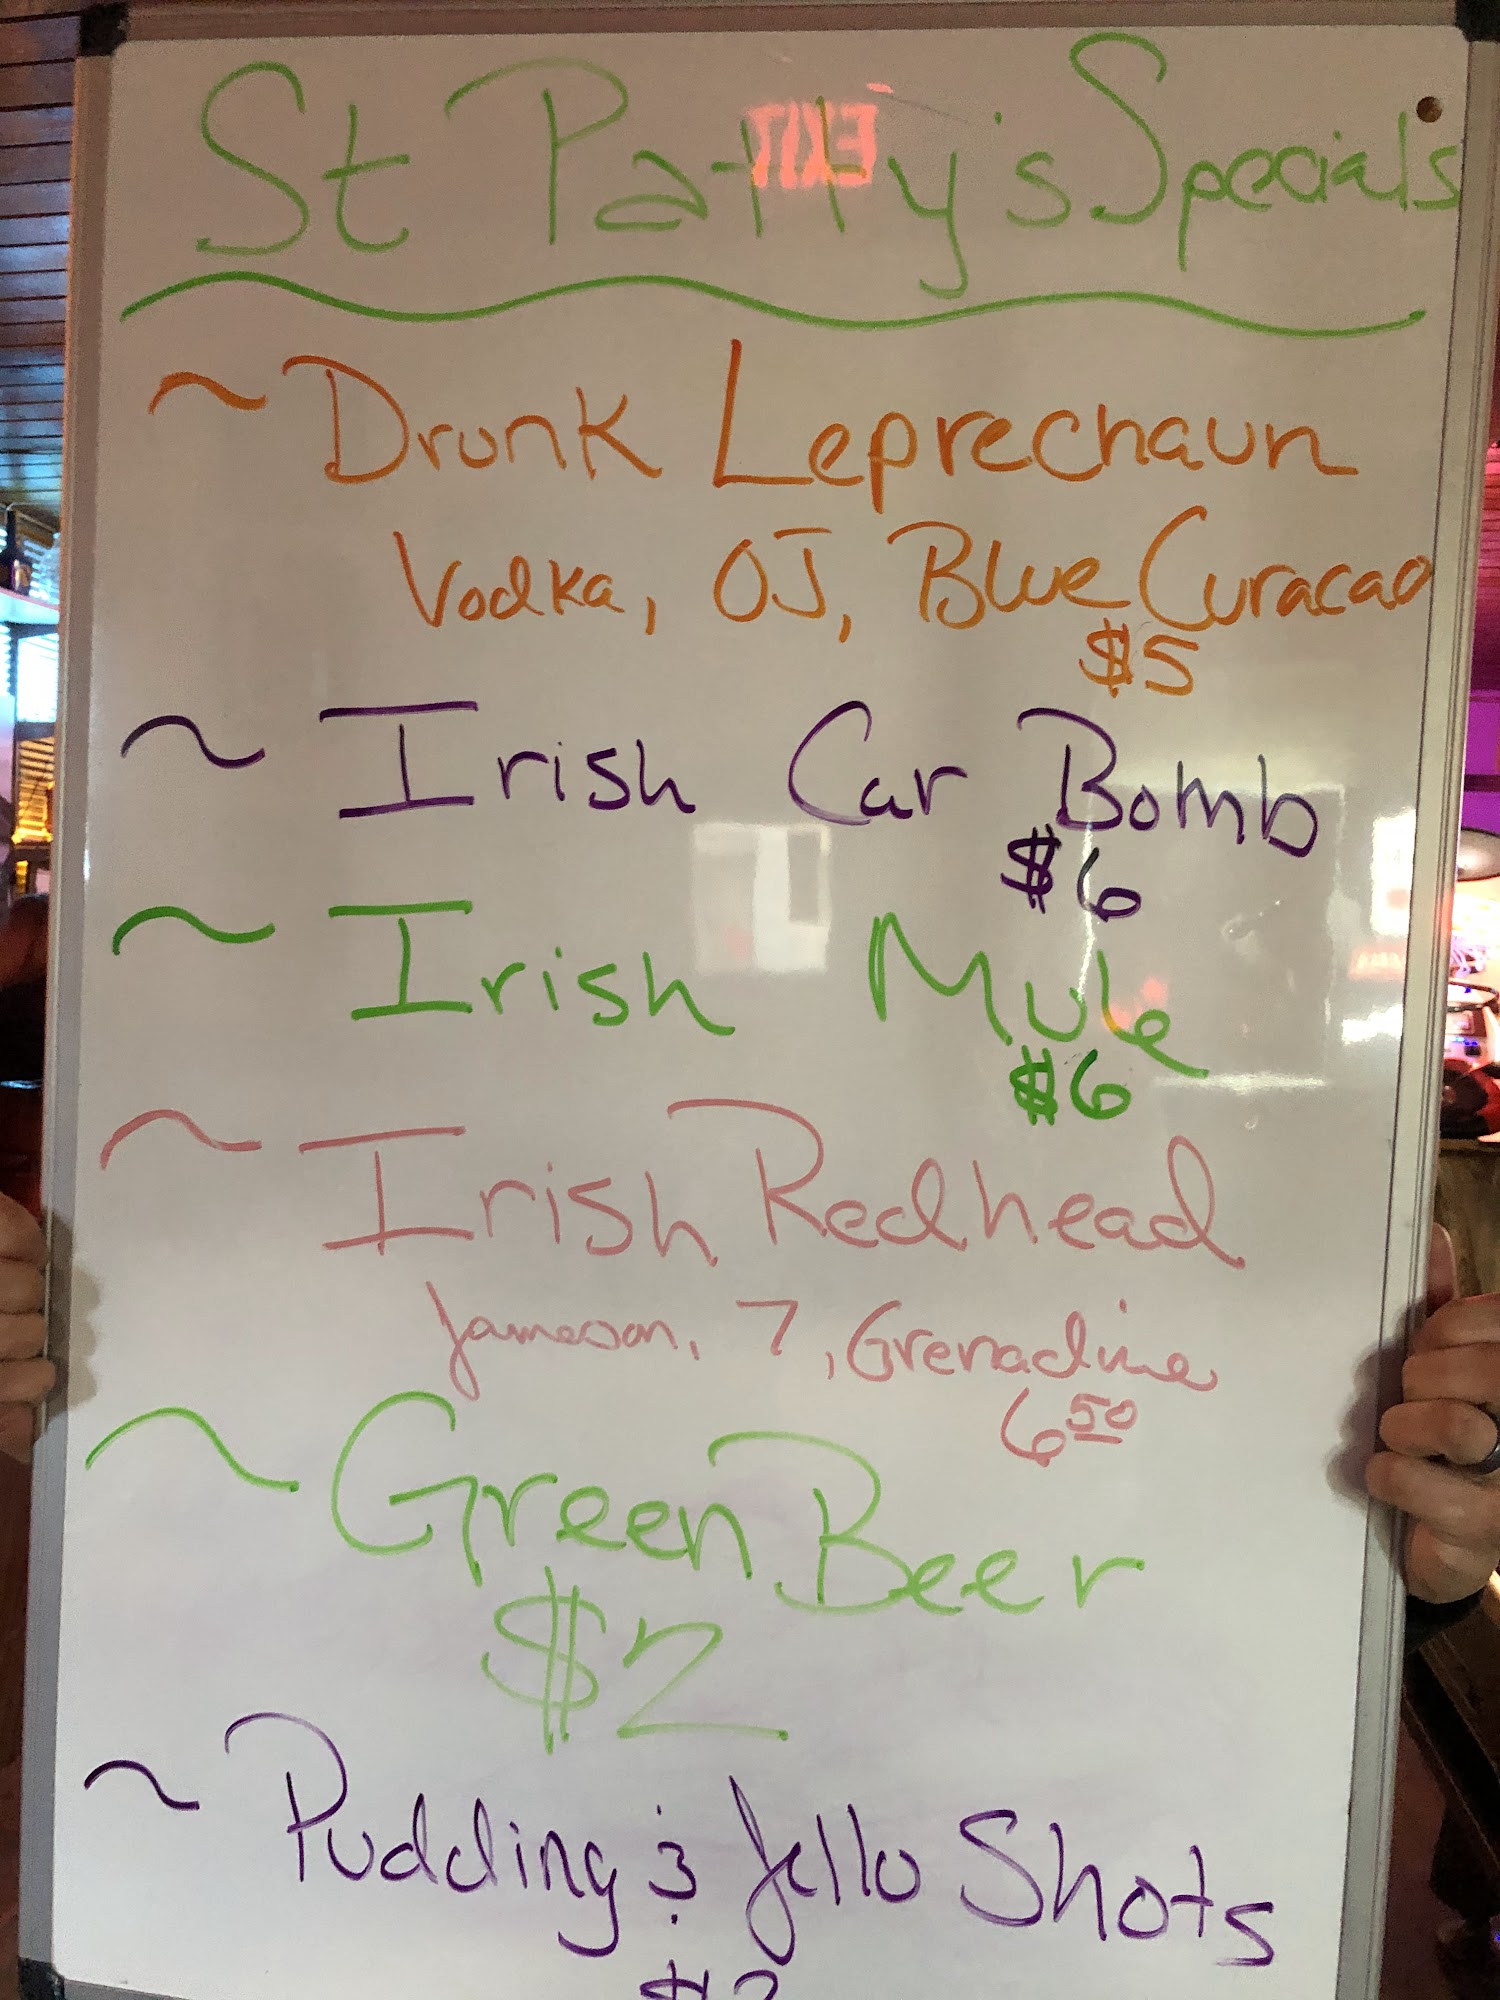 St Patty's Specials
EXIT
~ Drunk Leprechaun
Vodka, OJ, Blue Curacao
$5
~ Irish Car Bomb
$6
~ Irish Mule
$6
~ Irish Redhead
Jameson, 7, Grenadine
6 50
~ Green Beer
$2
~ Pudding & Jello Shots